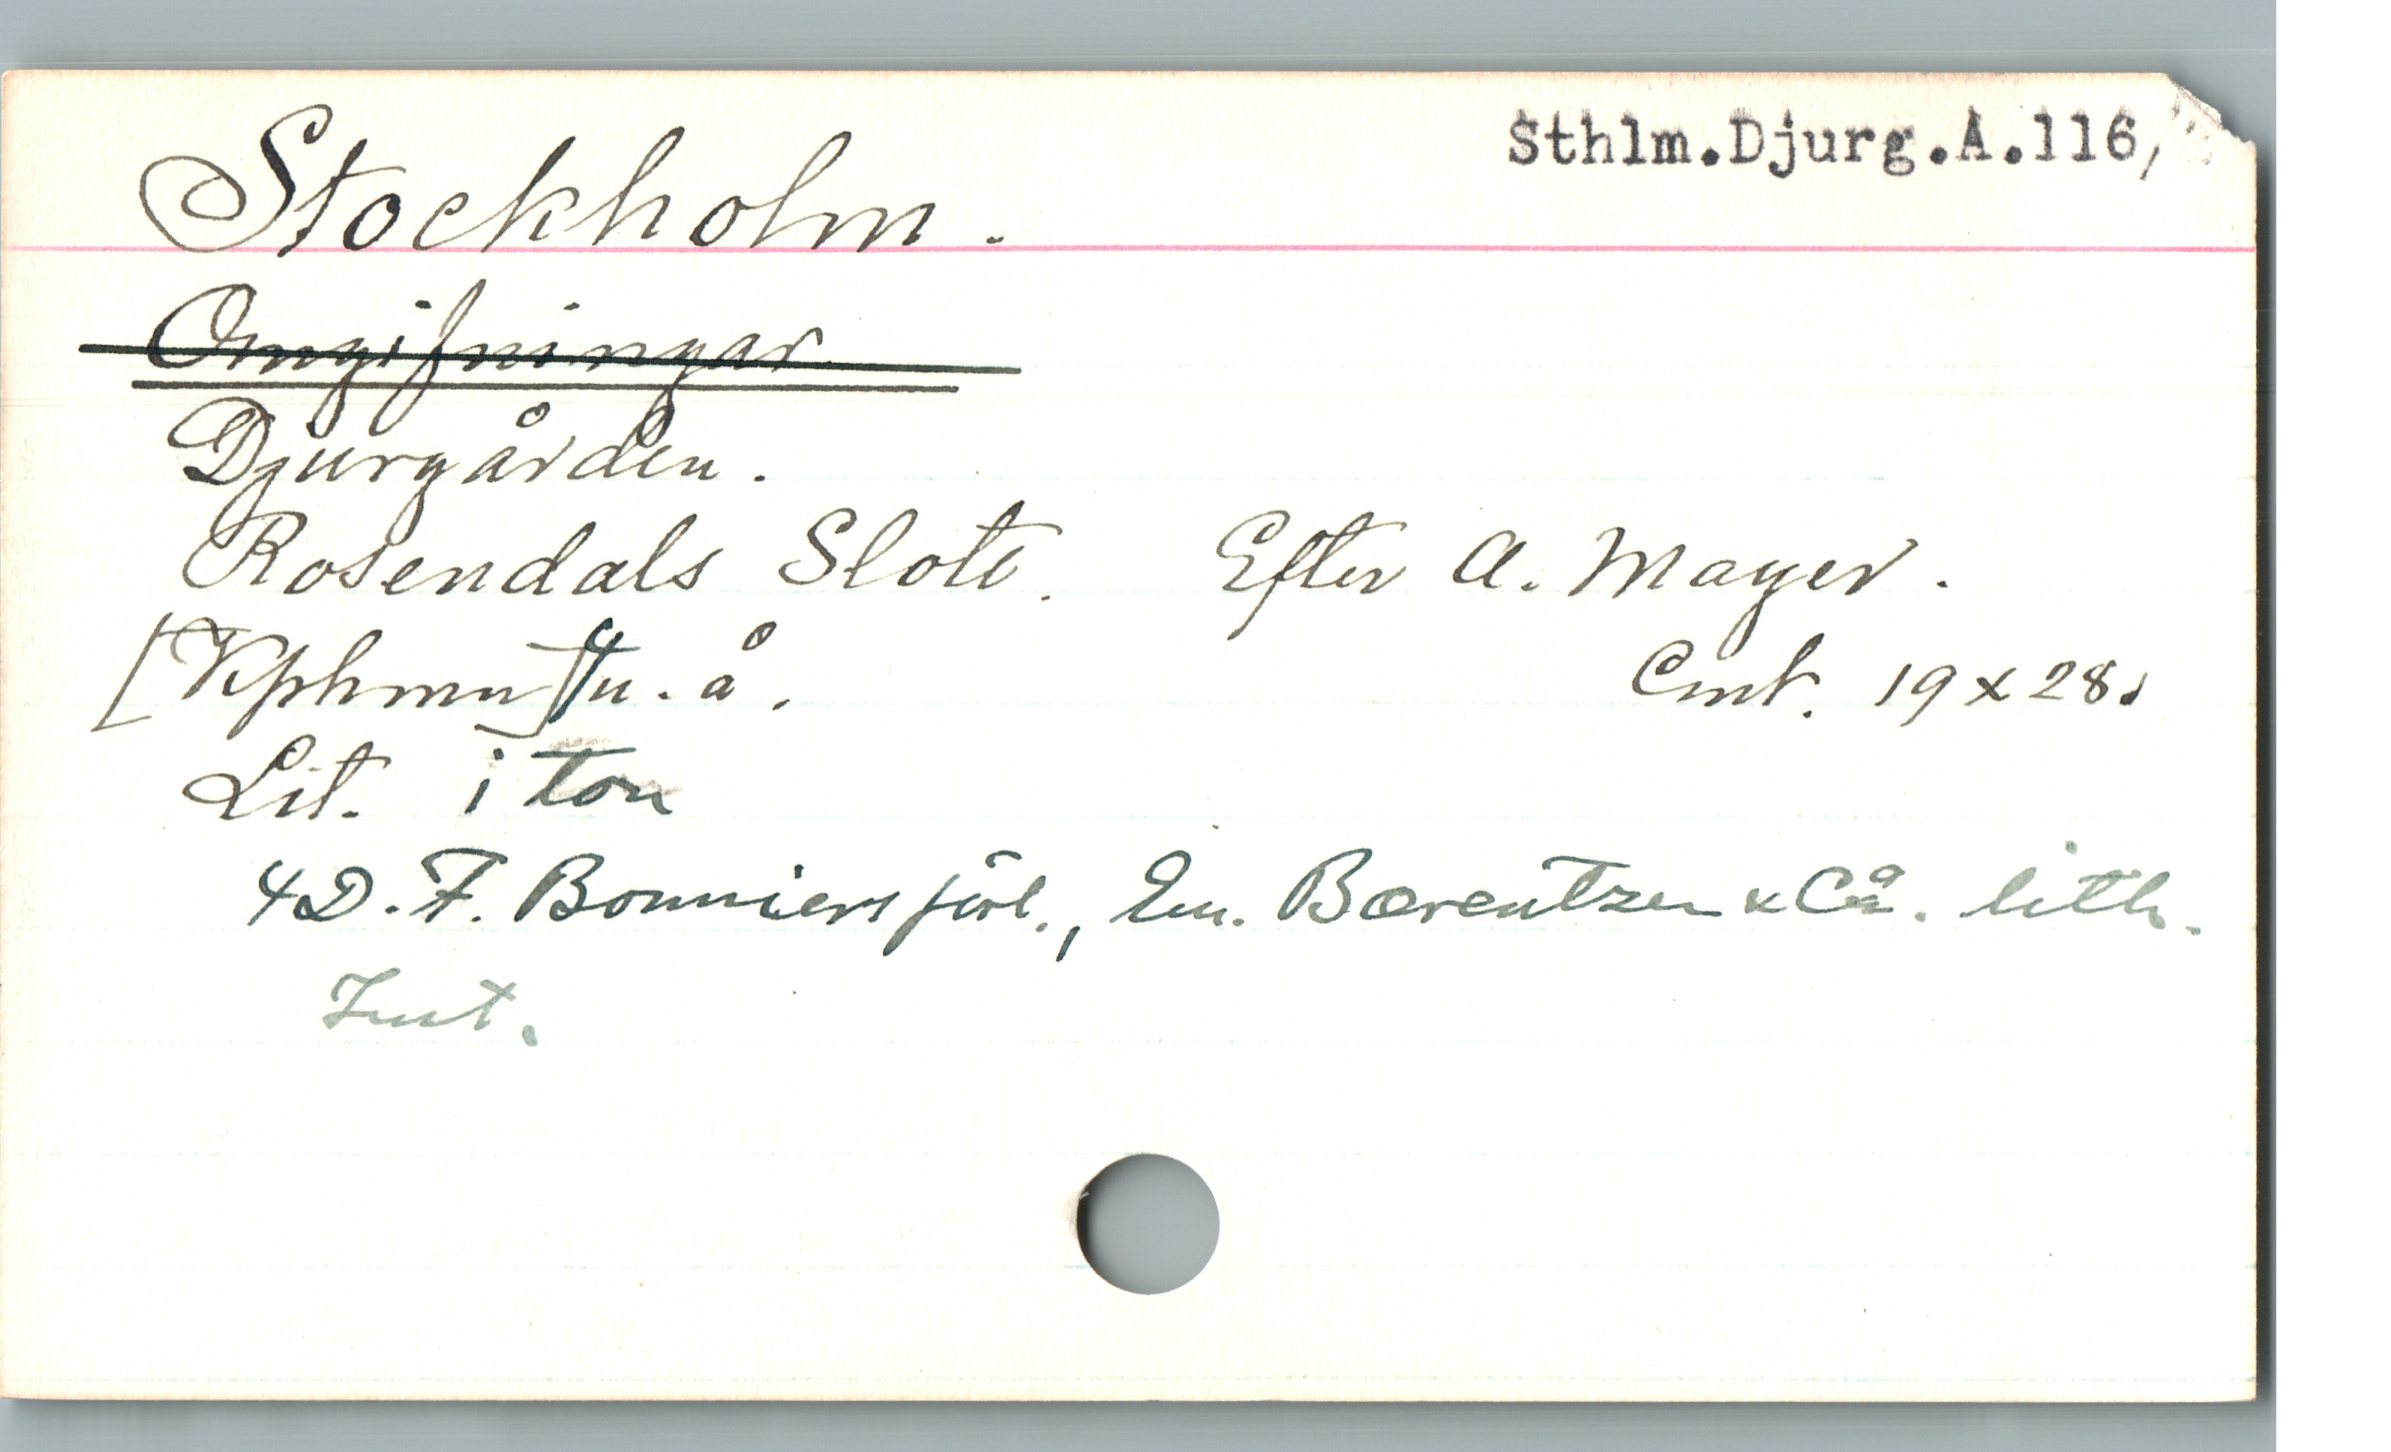 Sthlm.Djurg.A.116,
Stockholm.
Omgifningar
Djurgården.
Rosendals Slott. Efter A. Mayer.
[Kphmn] 4 u. å. Cmt. 19 x 28.
Lit. i ton
4 D. F. Bonniers förl., Em. Bærentzen & Co. lith.
Inst.